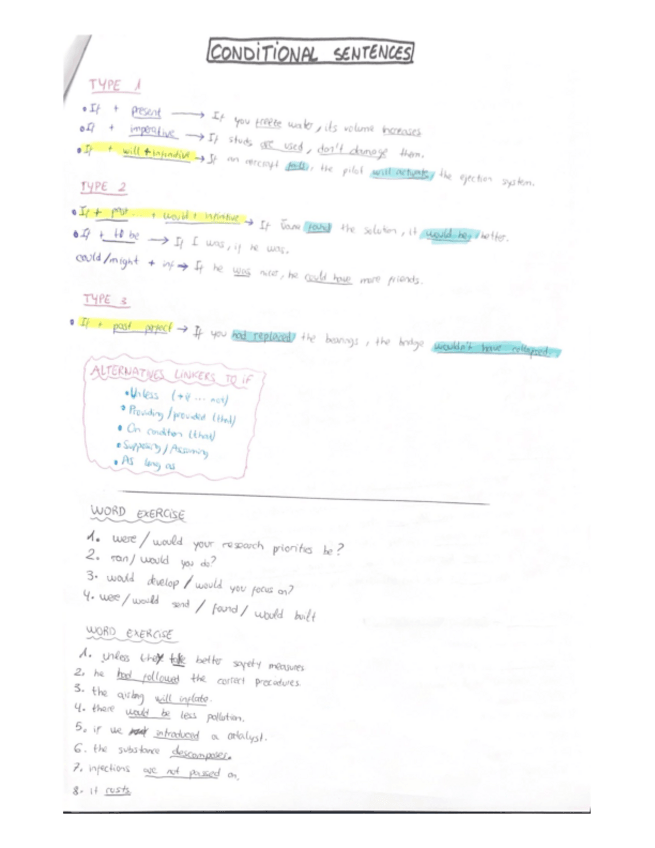 CONDITIONAL SENTENCES
TYPE 1
• If + present → If you freeze water, its volume increases
• If + imperative → If studs are used, don't damage them.
• If + will + infinitive → If an aircraft fall, the pilot will activate the ejection system.
TYPE 2
• If + past + would + infinitive → If found the solution, it would be better.
• If + to be → If I was, if he was.
could/might + inf → If he was nice, he could have more friends.
TYPE 3
• If + past perfect → If you had replaced the bearings, the bridge wouldn't have collapsed.
ALTERNATIVES LINKERS TO IF
• Unless (if ... not)
• Providing/provided (that)
• On condition (that)
• Supposing / Assuming
• As long as
WORD EXERCISE
1. were / would your research priorities be?
2. ran / would you do?
3. would develop / would you focus on?
4. were / would send / found / would built
WORD EXERCISE
1. unless they take better safety measures
2. he had followed the correct procedures.
3. the airbag will inflate.
4. there would be less pollution.
5. if we introduced a catalyst.
6. the substance descomposes.
7. injections are not passed on.
8. it costs